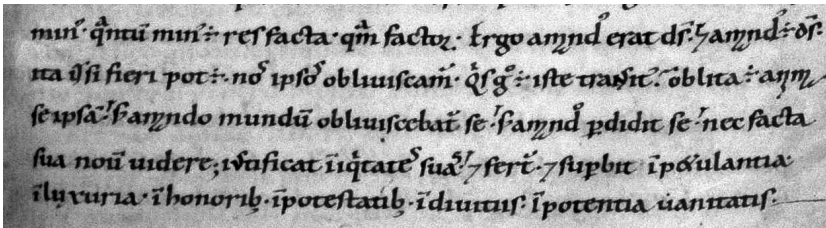 minꝰ. qͣntū minꝰ ÷ res facta. qm̄ factoꝛ. Ergo amandꝰ erat ds̄. ⁊ amandꝰ ÷ ds̄.
ita qͥ si fieri pot÷. noꝰ ipsoꝰ obliuiscam̄. Qͥs gͦ ÷ iste transit᷒. oblita ÷ anima
se ipsā. s; amando mundū obliuiscebat̄ se. s; amandꝰ ꝑdidit se. nec facta
sua nouit uidere; iustificat iīqͥtateˢ suaˢ. ⁊ fert̄. ⁊ suꝑbit īpetulantia
īluxuria. ī honorib; īpotestatib; īdiuitiis. īpotentia uanitatis.